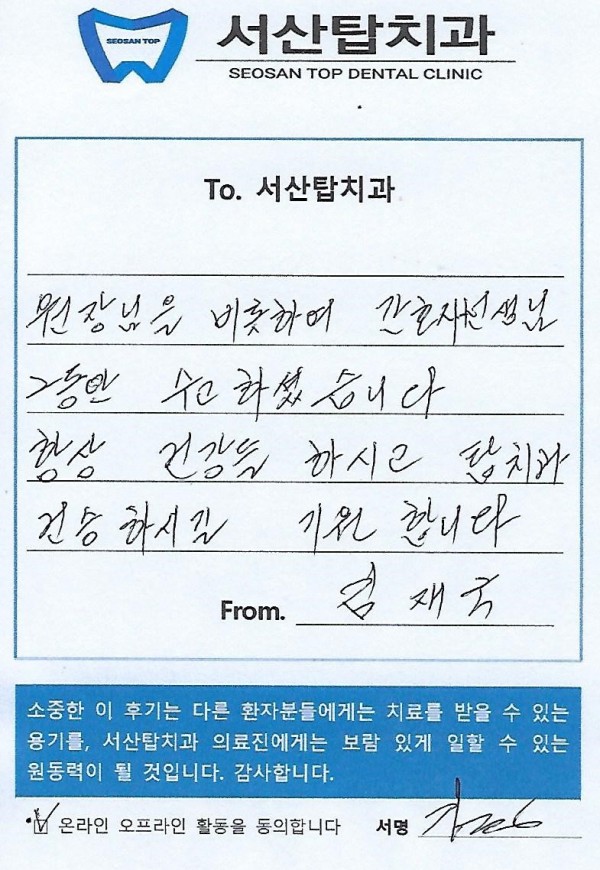 SEOSAN TOP
서산탑치과
SEOSAN TOP DENTAL CLINIC
To. 서산탑치과
원장님을 비롯하여 간호사선생님
그동안 수고하셨습니다
항상 건강들 하시고 탑치과
건승하시길 기원합니다
From. 김재국
소중한 이 후기는 다른 환자분들에게는 치료를 받을 수 있는
용기를, 서산탑치과 의료진에게는 보람 있게 일할 수 있는
원동력이 될 것입니다. 감사합니다.
온라인 오프라인 활동을 동의합니다 서명